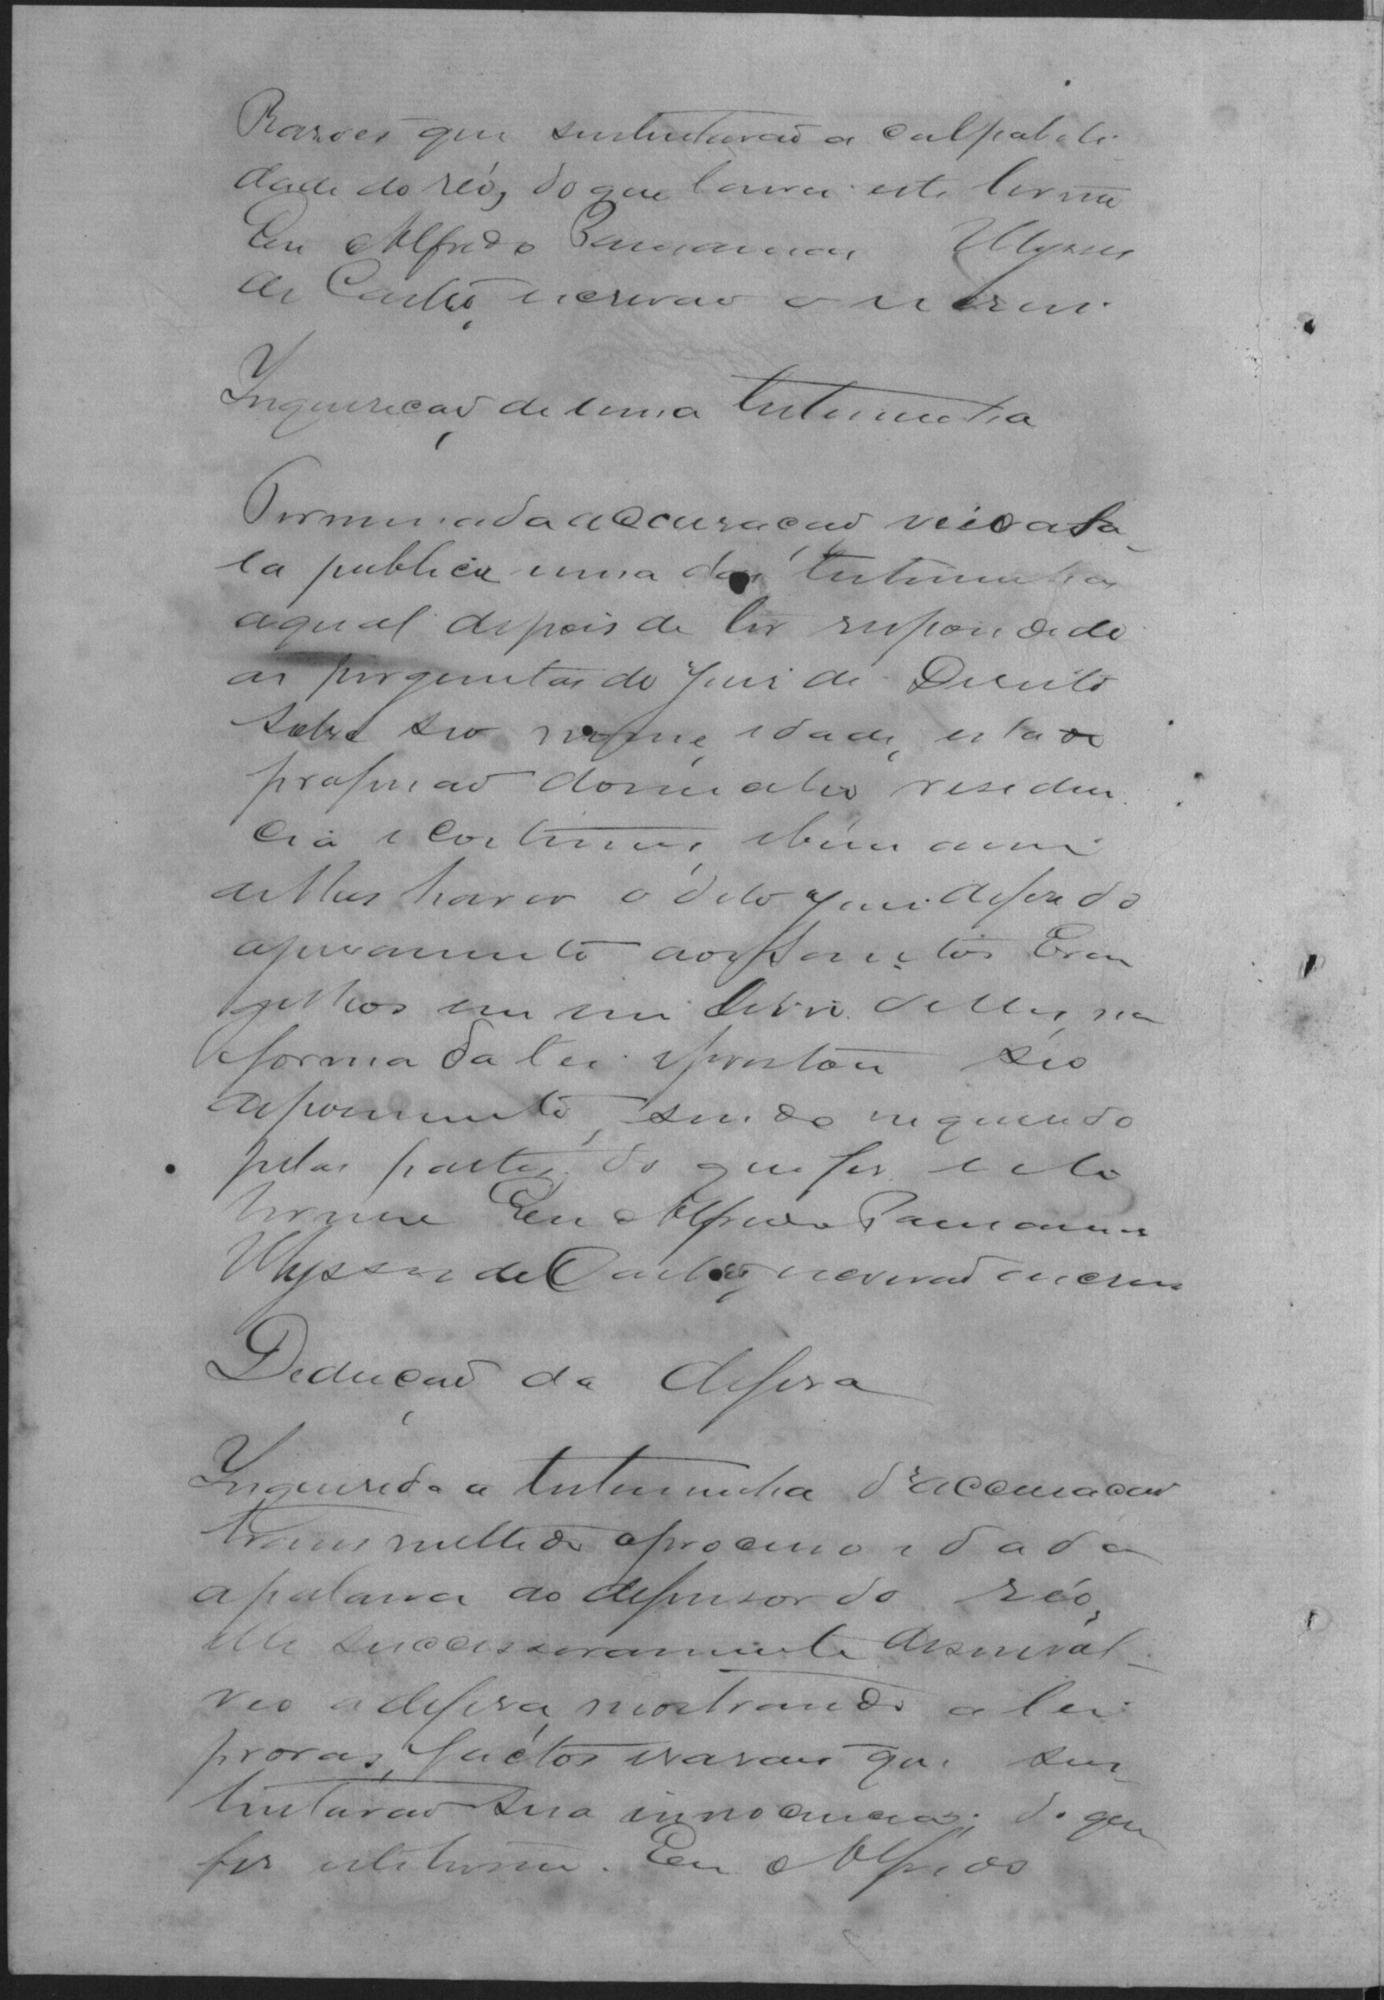 Razões que sustentavão a culpabili
dade do réo, do que lavrei este termo
Eu Alfredo Ulysses
de Castro, escrivão o escrevi.
Inquirição de uma testemunha
Terminada a accusação, veio a sa
la publica uma das testemunhas
a qual depois de ter respondido
as perguntas do Juiz de Direito
sobre seo nome, idade, estado
profissão domicilio residen
cia e costumes,
delles haver o dito Juiz deferido
aos Santos Evan
gelhos em um livro delles, na
forma da lei prestou seo
depoimento, sendo
pelas partes do que fiz este
termo Eu Alfredo
Ulysses de Castro, escrivão escrevi
Dedução da defesa
Inquirida a testemunha d'accusação
transmettido o processo e dada
a palavra ao defensor do réo,
elle successivamente desenvol
veo a defesa, mostrando a lei
provas, factos e razões que sus
tentavão sua innocencia; do que
fiz este termo. Eu Alfredo